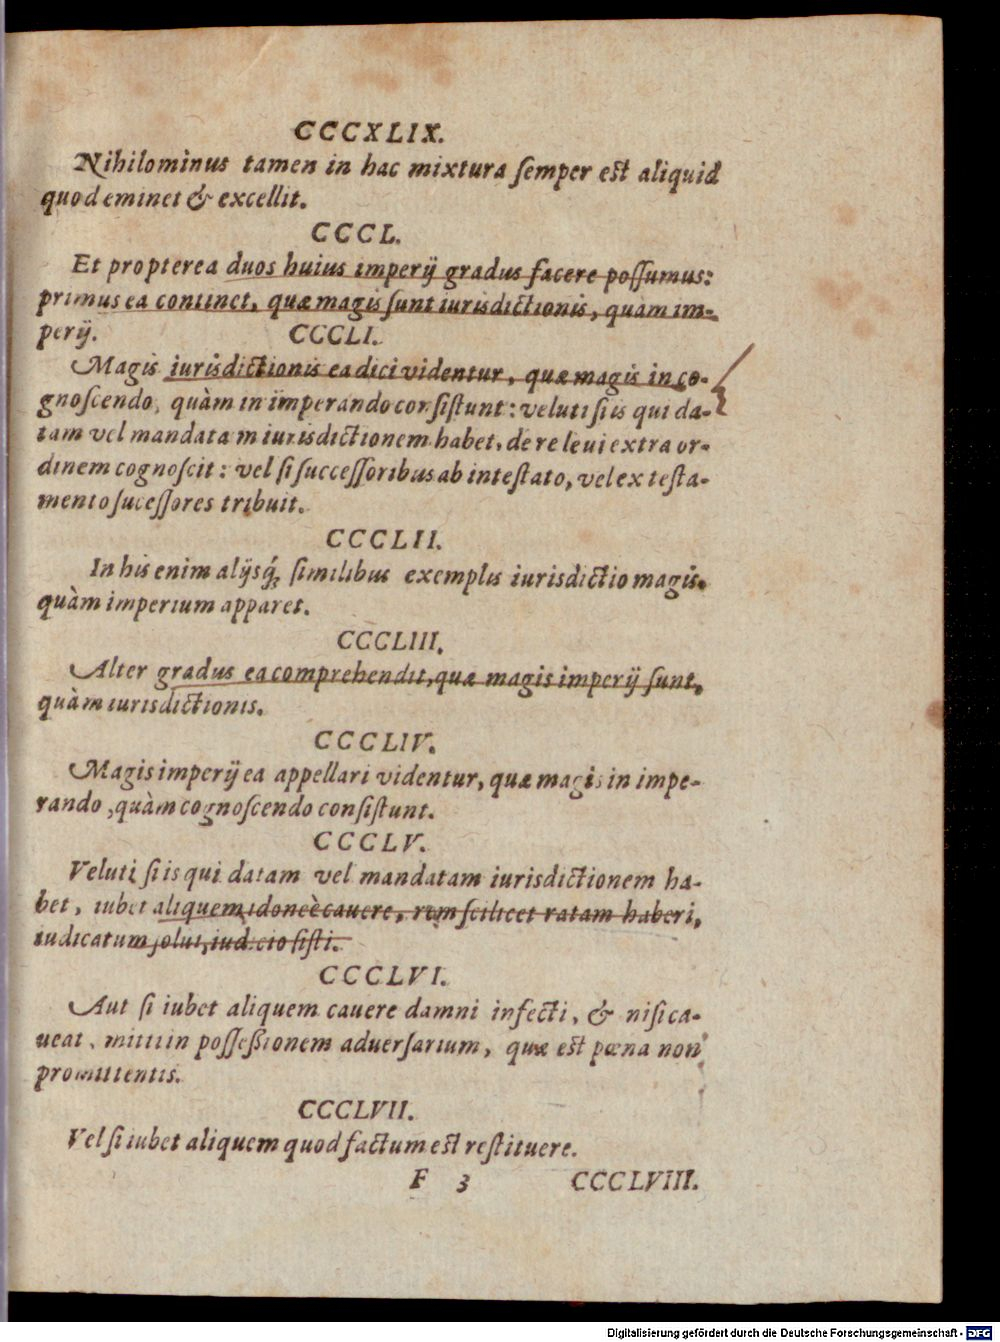 CCCXLIX.
Nihilominus tamen in hac mixtura ſemper est aliquid
quod eminet & excellit.
CCCL.
Et propterea duos huius imperij gradus facere poſſumus:
primus ea continet, quæ magis ſunt iurisdictionis, quam im-
perij. CCCLI.
Magis iurisdictionis ea dici videntur, quæ magis in co-
gnoſcendo, quàm in imperando conſiſtunt: veluti ſi is qui da-
tam vel mandatam iurisdictionem habet, de re leui extra or-
dinem cognoſcit: vel ſi ſucceſſoribus ab inteſtato, vel ex teſta-
mento ſuceſſores tribuit.
CCCLII.
In his enim alijsq́; ſimilibus exemplis iurisdictio magis.
quàm imperium apparet.
CCCLIII.
Alter gradus ea comprehendit, quæ magis imperij ſunt,
quàm iurisdictionis.
CCCLIV.
Magis imperij ea appellari videntur, quæ magis in impe-
rando, quàm cognoſcendo conſiſtunt.
CCCLV.
Veluti ſi is qui datam vel mandatam iurisdictionem ha-
bet, iubet aliquem idoneè cauere, rem ſcilicet ratam haberi,
iudicatum ſolui, iudicio ſiſti.
CCCLVI.
Aut ſi iubet aliquem cauere damni infecti, & niſi ca-
ueat, mitti in poſſeßionem aduerſarium, quæ est pœna non
promittentis.
CCCLVII.
Vel ſi iubet aliquem quod factum est reſtituere.
F 3 CCCLVIII.
Digitalisierung gefördert durch die Deutsche Forschungsgemeinschaft - DFG